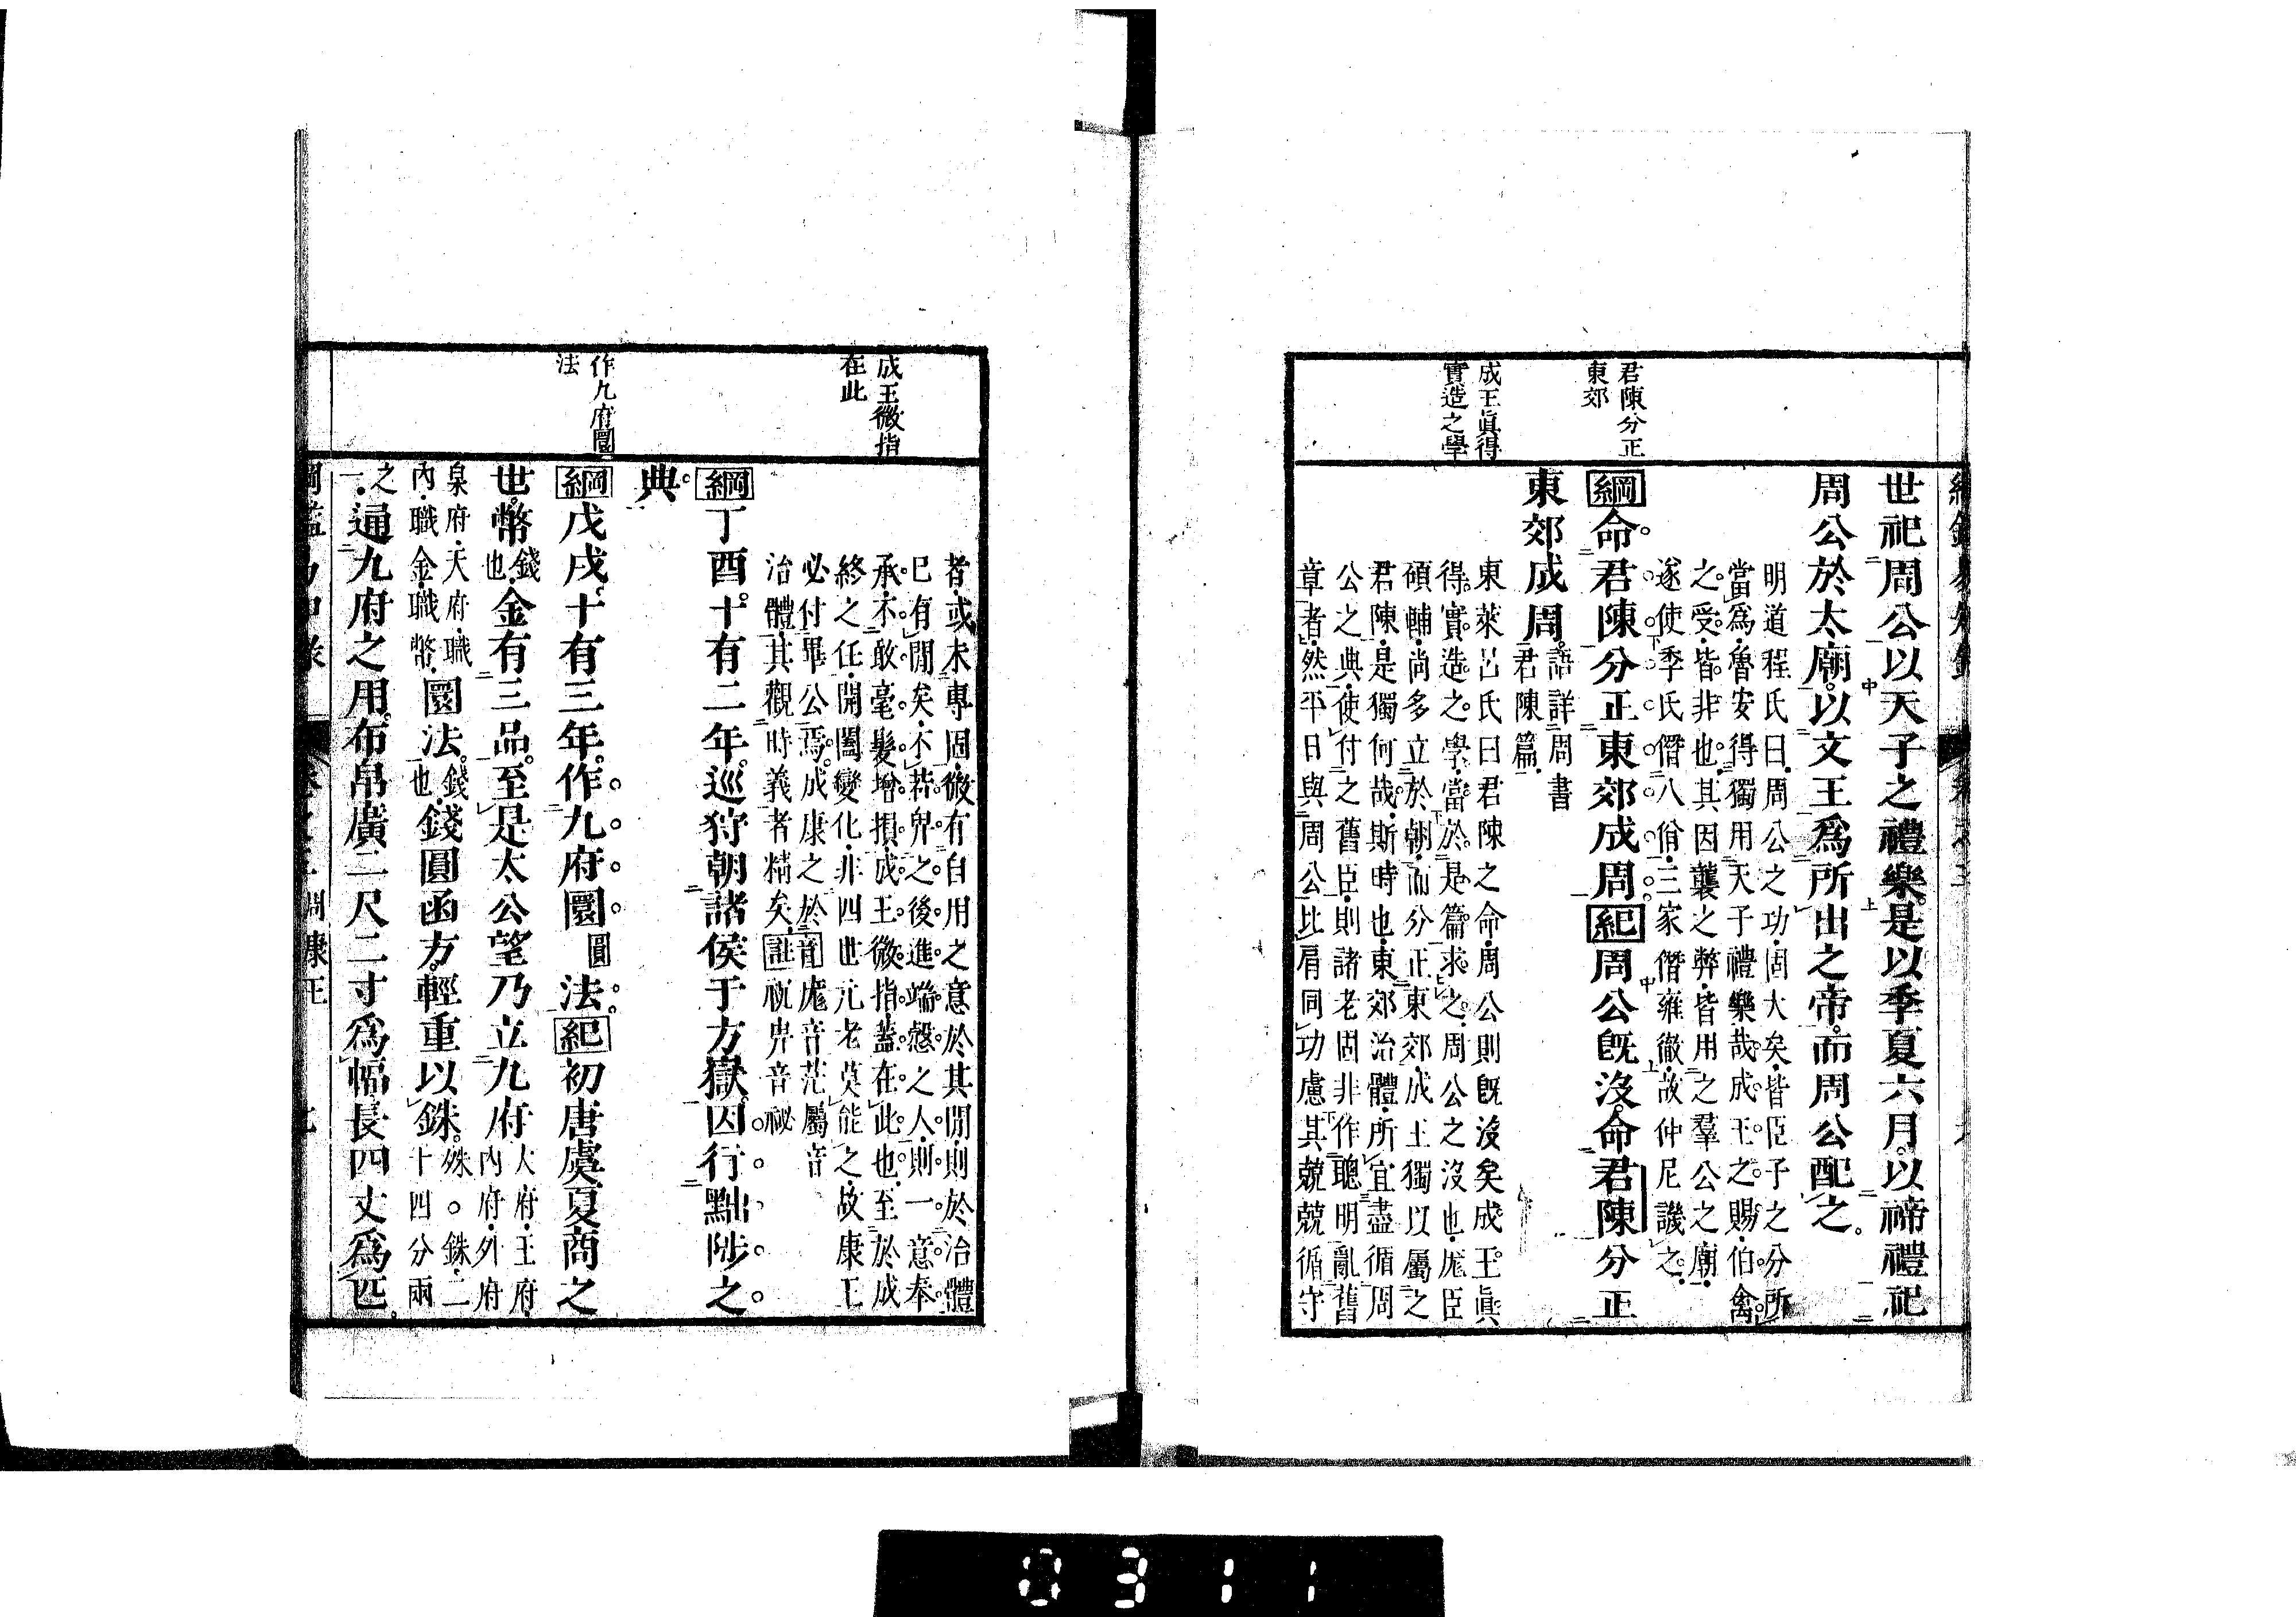 君陳分正
東郊
成王眞得
實造之學
世祀周公以天子之禮樂是以季夏六月以禘禮祀
周公於太廟以文王爲所出之帝而周公配之
明道程氏曰周公之功固大矣皆臣子之分所
當爲魯安得獨用天子禮樂哉成王之賜伯禽
之受皆非也其因襲之弊皆用之羣公之廟
遂使季氏僭八佾三家僭雍徹故仲尼譏之
綱命君陳分正東郊成周紀周公既沒命君陳分正
東郊成周語詳周書
君陳篇
東萊呂氏曰君陳之命周公則既沒矣成王眞
得實造之學當於是篇求之周公之沒也厖臣
碩輔尚多立於朝而分正東郊成王獨以屬之
君陳是獨何哉斯時也東郊治體所宜盡循周
公之典使付之舊臣則諸老固非作聰明亂舊
章者然平日與周公比肩同功慮其兢兢循守
成王微指
在此
作九府圜
法
者或未專固微有自用之意於其閒則於治體
已有閒矣不若𢌿之後進端慤之人則一意奉
承不敢毫髮增損成王微指蓋在此也至於成
終之任開闔變化非四世元老莫能之故康王
必付畢公焉成康之於音厖音茫屬音
治體其觀時義者精矣註祝𢌿音祕
綱丁酉十有二年巡狩朝諸侯于方嶽因行黜陟之
典
綱戊戌十有三年作九府圜圓法紀初唐虞夏商之
世幣錢也金有三品至是太公望乃立九府大府王府
內府外府
泉府天府職
內職金職幣圜法錢也錢圓函方輕重以銖殊。銖二
十四分兩
之
一通九府之用布帛廣二尺二寸爲幅長四丈爲匹
0311